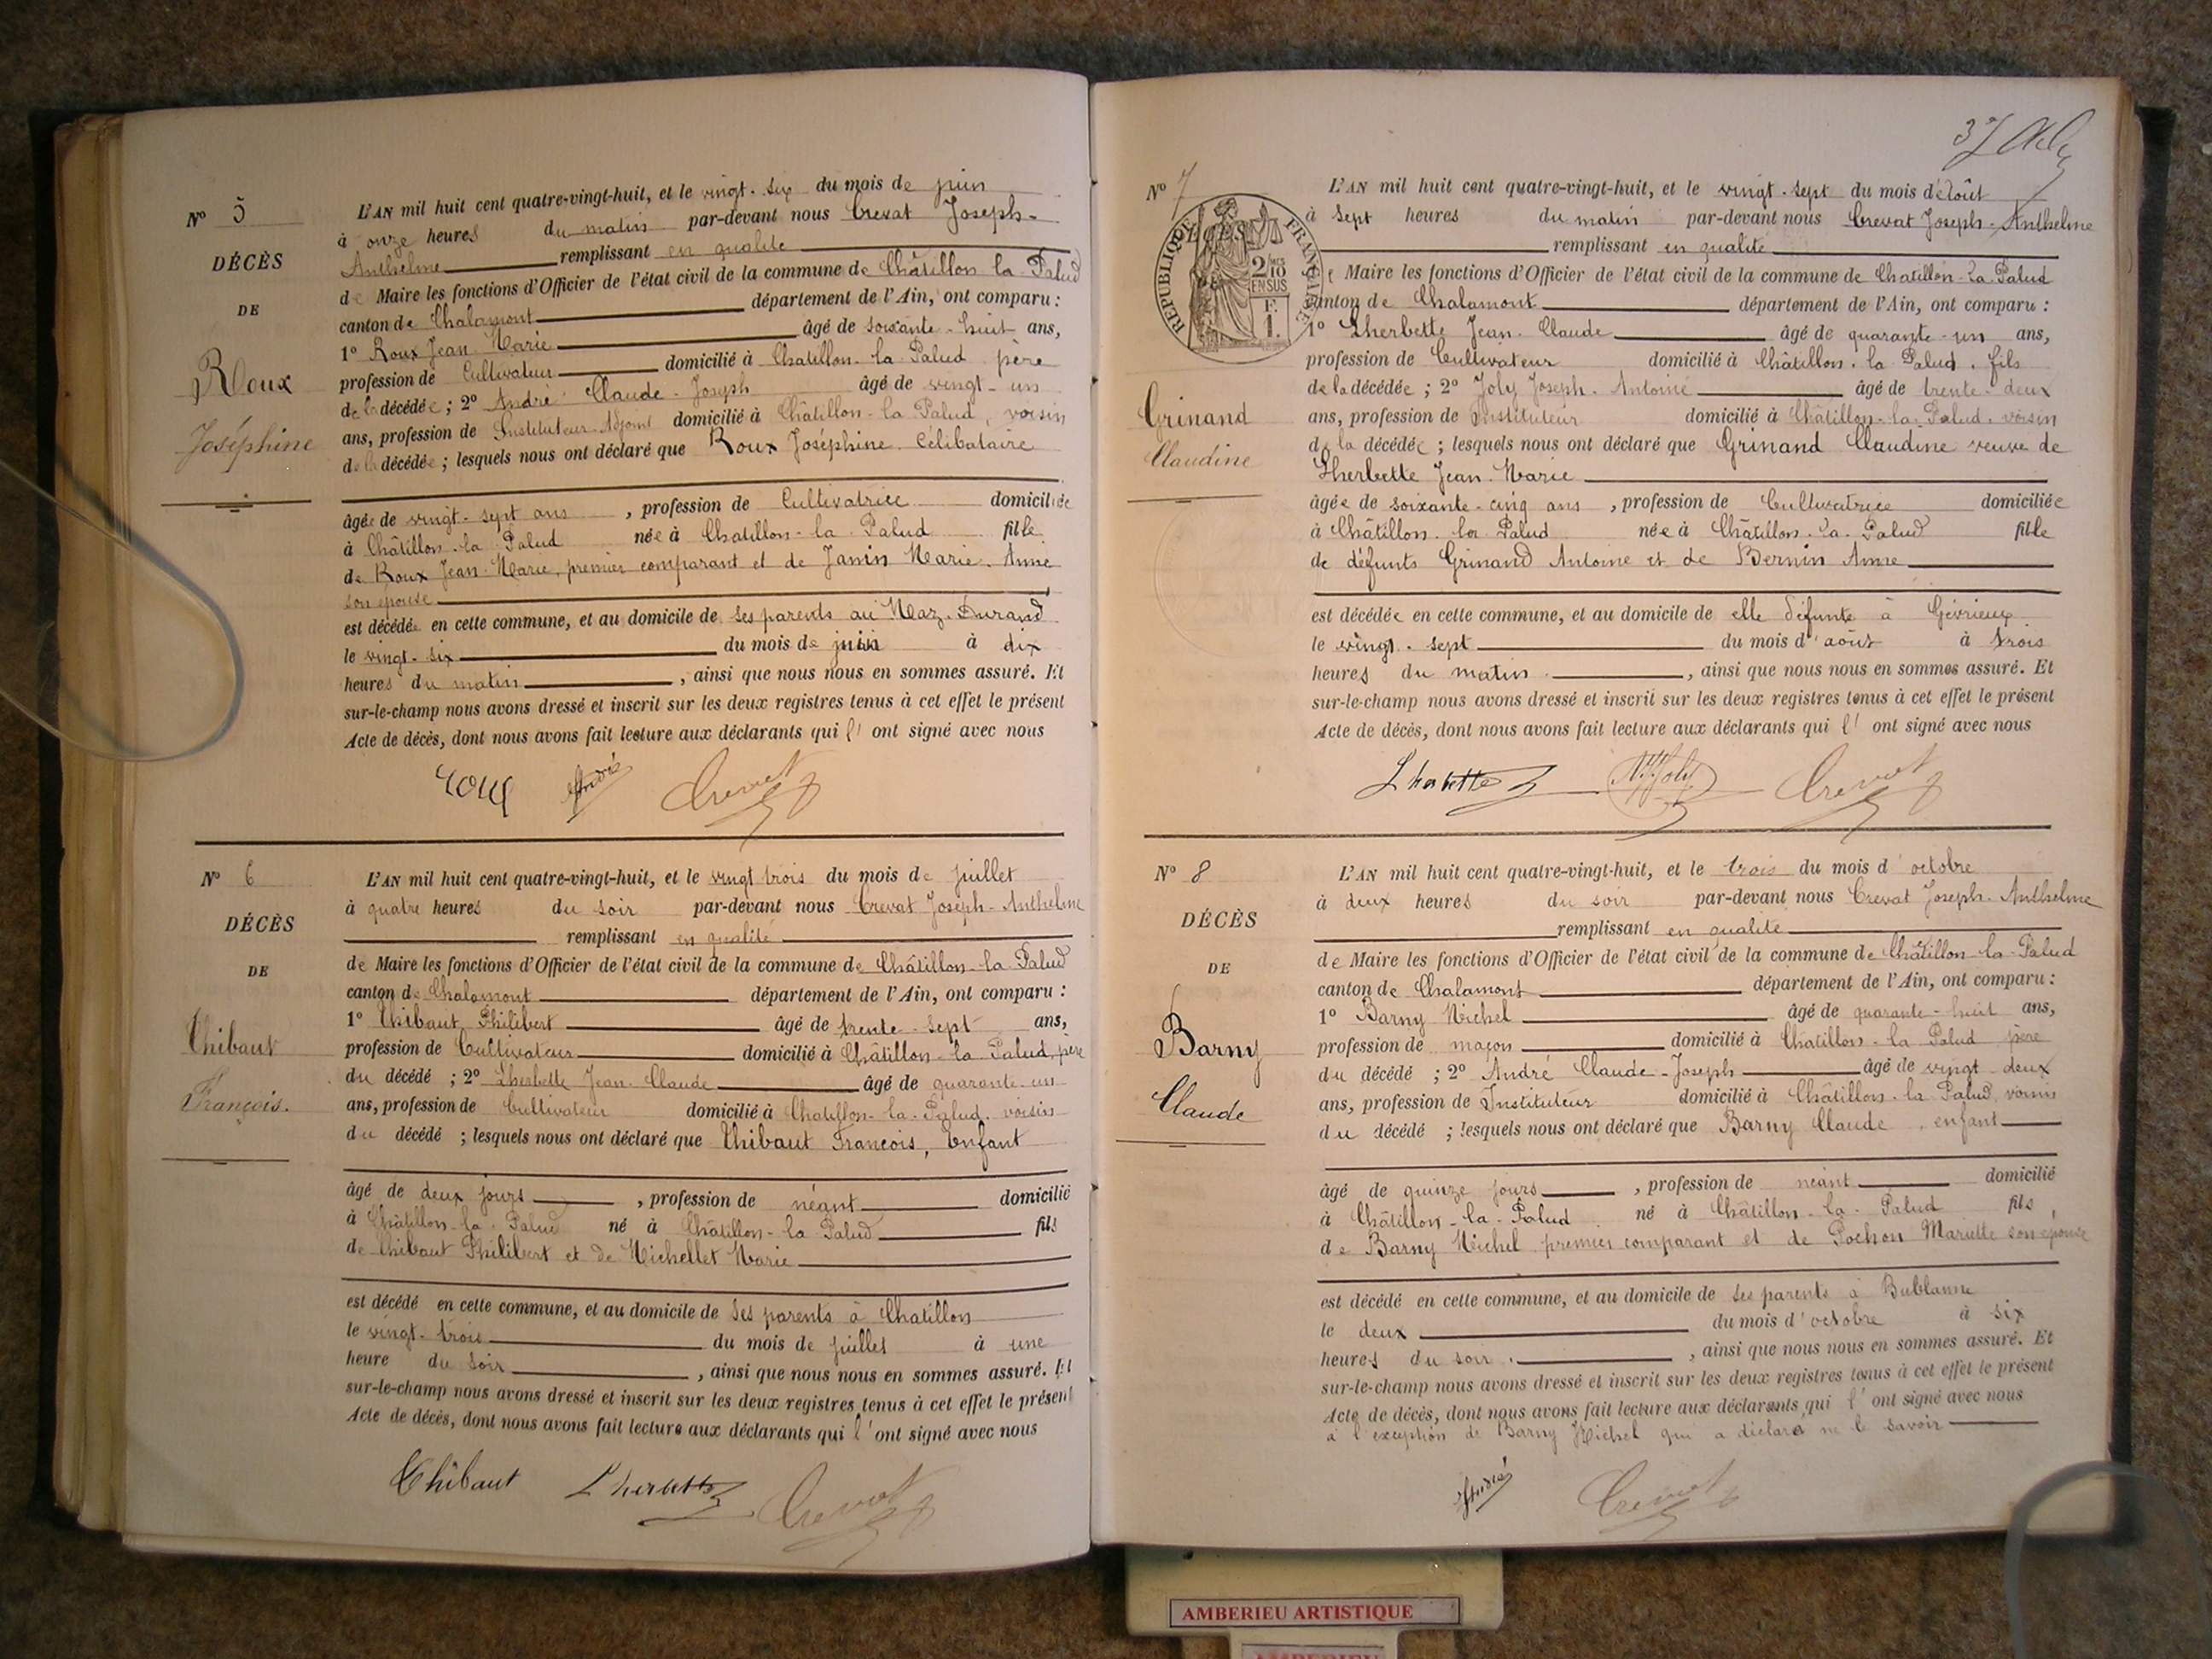 Nº 5
DÉCÈS
DE
Roux
Joséphine
L'AN mil huit cent quatre-vingt-huit, et le vingt-six du mois de juin
à onze heures du matin par-devant nous Crevat Joseph-
Anthelme remplissant en qualité
de Maire les fonctions d'Officier de l'état civil de la commune de Châtillon-la-Palud
canton de Chalamont département de l'Ain, ont comparu :
1º Roux Jean-Marie âgé de soixante-huit ans,
profession de Cultivateur domicilié à Chatillon-la-Palud père
de la décédée ; 2º André Claude-Joseph âgé de vingt-un
ans, profession de Instituteur-Adjoint domicilié à Châtillon-la-Palud, voisin
de la décédée ; lesquels nous ont déclaré que Roux Joséphine Célibataire
âgée de vingt-sept ans , profession de Cultivatrice domiciliée
à Châtillon-la-Palud née à Chatillon-la-Palud fille
de Roux Jean-Marie, premier comparant et de Janin Marie-Anne
son épouse
est décédée en cette commune, et au domicile de ses parents au Maz-Durand
le vingt-six du mois de juin à dix
heures du matin , ainsi que nous nous en sommes assuré. Et
sur-le-champ nous avons dressé et inscrit sur les deux registres tenus à cet effet le présent
Acte de décès, dont nous avons fait lecture aux déclarants qui l' ont signé avec nous
roux André Crevat
Nº 6
DÉCÈS
DE
Thibaut
François.
L'AN mil huit cent quatre-vingt-huit, et le vingt trois du mois de juillet
à quatre heures du soir par-devant nous Crevat Joseph-Anthelme
remplissant en qualité
de Maire les fonctions d'Officier de l'état civil de la commune de Châtillon-la-Palud
canton de Chalamont département de l'Ain, ont comparu :
1º Thibaut Philibert âgé de trente-sept ans,
profession de Cultivateur domicilié à Châtillon-la-Palud, père
du décédé ; 2º Lherbette Jean-Claude âgé de quarante-un
ans, profession de Cultivateur domicilié à Chatillon-la-Palud. voisin
du décédé ; lesquels nous ont déclaré que Thibaut François, Enfant
âgé de deux jours , profession de néant domicilié
à Châtillon-la-Palud né à Châtillon-la-Palud fils
de Thibaut Philibert et de Michellet Marie
est décédé en cette commune, et au domicile de ses parents à Chatillon
le vingt-trois du mois de juillet à une
heure du soir , ainsi que nous nous en sommes assuré. Et
sur-le-champ nous avons dressé et inscrit sur les deux registres tenus à cet effet le présent
Acte de décès, dont nous avons fait lecture aux déclarants qui l' ont signé avec nous
Thibaut Lherbette Crevat
37
Nº 7
DÉCÈS
RÉPUBLIQUE FRANÇAISE
2/10
EN SUS
F.
1.
Grinand
Claudine
L'AN mil huit cent quatre-vingt-huit, et le vingt-sept du mois d'Août
à sept heures du matin par-devant nous Crevat Joseph-Anthelme
remplissant en qualité
de Maire les fonctions d'Officier de l'état civil de la commune de Chatillon-la-Palud
canton de Chalamont département de l'Ain, ont comparu :
1º Lherbette Jean-Claude âgé de quarante-un ans,
profession de Cultivateur domicilié à Châtillon-la-Palud, fils
de la décédée ; 2º Joly Joseph-Antoine âgé de trente-deux
ans, profession de Instituteur domicilié à Châtillon-la-Palud. voisin
de la décédée ; lesquels nous ont déclaré que Grinand Claudine veuve de
Lherbette Jean-Marie
âgée de soixante-cinq ans , profession de Cultivatrice domiciliée
à Châtillon-la-Palud née à Châtillon-la-Palud fille
de défunts Grinand Antoine et de Bernin Anne
est décédée en cette commune, et au domicile de elle défunte à Gévrieux
le vingt-sept du mois d'août à trois
heures du matin , ainsi que nous nous en sommes assuré. Et
sur-le-champ nous avons dressé et inscrit sur les deux registres tenus à cet effet le présent
Acte de décès, dont nous avons fait lecture aux déclarants qui l' ont signé avec nous
Lherbette Joly Crevat
Nº 8
DÉCÈS
DE
Barny
Claude
L'AN mil huit cent quatre-vingt-huit, et le trois du mois d'octobre
à deux heures du soir par-devant nous Crevat Joseph-Anthelme
remplissant en qualité
de Maire les fonctions d'Officier de l'état civil de la commune de Châtillon-la-Palud
canton de Chalamont département de l'Ain, ont comparu :
1º Barny Michel âgé de quarante-huit ans,
profession de maçon domicilié à Chatillon-la-Palud père
du décédé ; 2º André Claude-Joseph âgé de vingt-deux
ans, profession de Instituteur domicilié à Châtillon-la-Palud, voisin
du décédé ; lesquels nous ont déclaré que Barny Claude, enfant
âgé de quinze jours , profession de néant domicilié
à Châtillon-la-Palud né à Châtillon-la-Palud fils
de Barny Michel premier comparant et de Pochon Mariette son épouse
est décédé en cette commune, et au domicile de ses parents à Bublanne
le deux du mois d'octobre à six
heures du soir , ainsi que nous nous en sommes assuré. Et
sur-le-champ nous avons dressé et inscrit sur les deux registres tenus à cet effet le présent
Acte de décès, dont nous avons fait lecture aux déclarants qui l' ont signé avec nous
à l'exception de Barny Michel qui a déclaré ne le savoir
André Crevat
AMBERIEU ARTISTIQUE
AMBERIEU